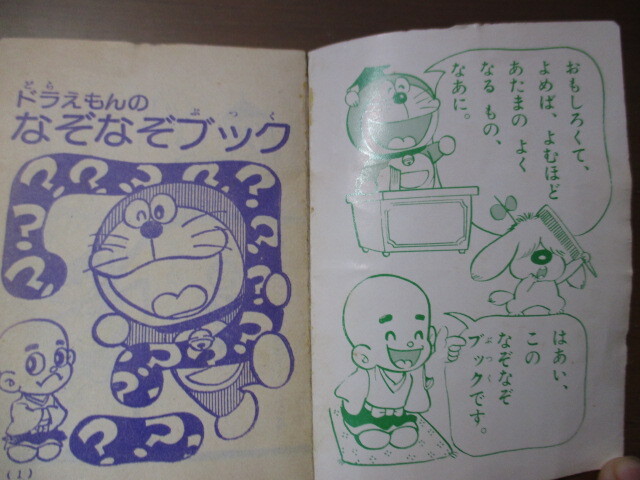 ドラえもんの
なぞなぞブック
どら
ぶっく
(1)
おもしろくて、
よめば、よむほど
あたまの よく
なる もの、
なあに。
はあい、
この
なぞなぞ
ブックです。
ぶっく